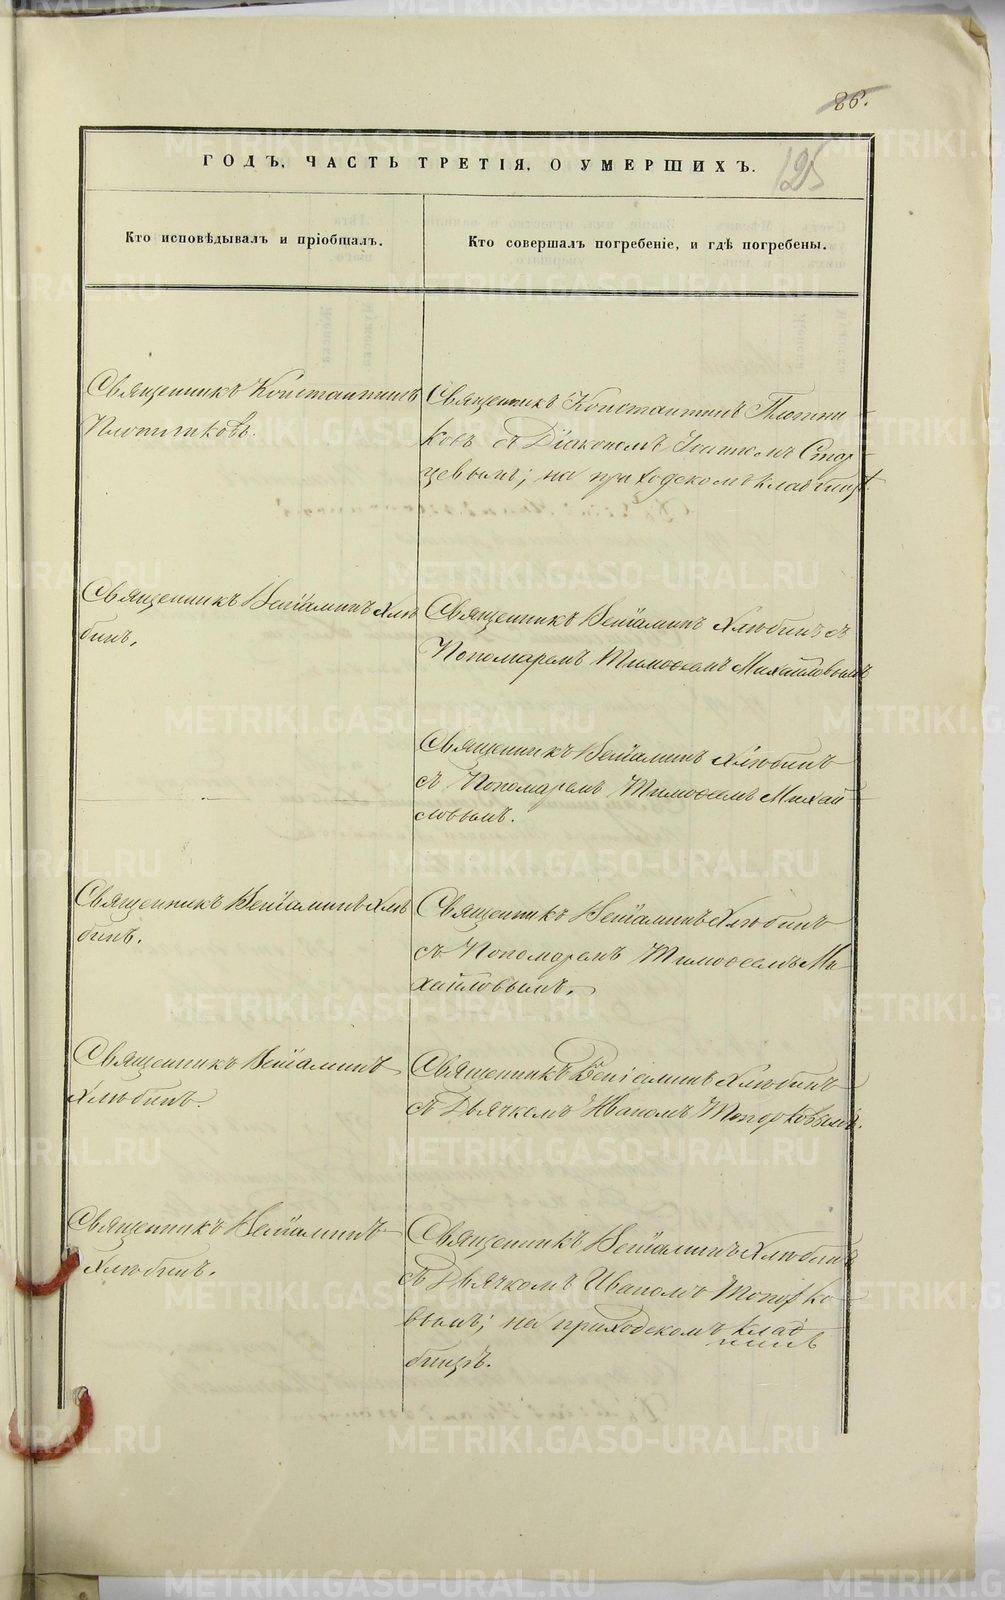 86.
125
ГОДЪ, ЧАСТЬ ТРЕТІЯ, О УМЕРШИХЪ.
Кто исповѣдывалъ и пріобщалъ.
Кто совершалъ погребеніе, и гдѣ погребены.
Священникъ Константинъ
Плотниковъ.
Священникъ Константинъ Плотни
ковъ съ Діакономъ Іоанномъ Стар
цевымъ; на приходскомъ кладбищѣ.
Священникъ Веніаминъ Хлю
бинъ.
Священникъ Веніаминъ Хлюбинъ съ
Пономаремъ Тимоѳеемъ Михайловымъ
Священникъ Веніаминъ Хлюбинъ
съ Пономаремъ Тимоѳеемъ Михай
ловымъ.
Священникъ Веніаминъ Хлю
бинъ.
Священникъ Веніаминъ Хлюбинъ
съ Пономаремъ Тимоѳеемъ Ми
хайловымъ.
Священникъ Веніаминъ
Хлюбинъ.
Священникъ Веніаминъ Хлюбинъ
съ Дьячкомъ Иваномъ Топорковымъ.
Священникъ Веніаминъ
Хлюбинъ.
Священникъ Веніаминъ Хлюбинъ
съ Дьячкомъ Иваномъ Топорко
вымъ; на приходскомъ клад
бищѣ.
METRIKI.GASO-URAL.RU